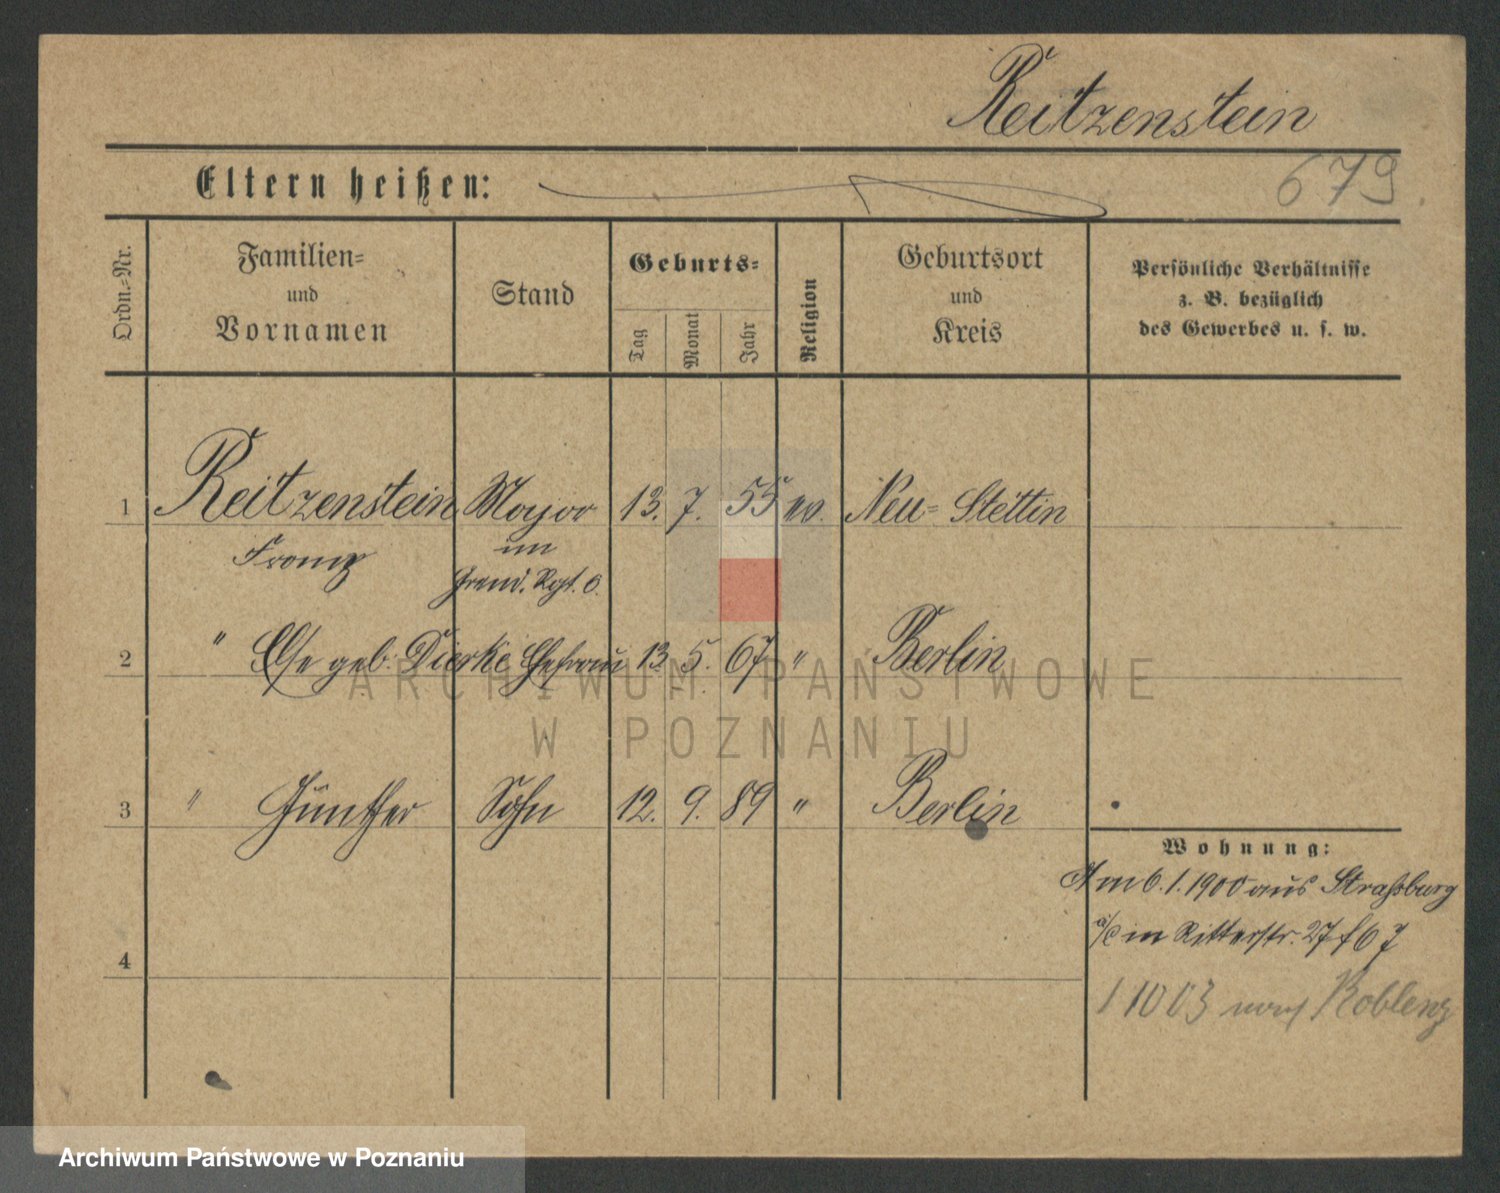 Reitzenstein
Eltern heißen:
679.
Ordn.-Nr.
Familien-
und
Vornamen
Stand
Geburts-
Tag
Monat
Jahr
Religion
Geburtsort
und
Kreis
Persönliche Verhältnisse
z. B. bezüglich
des Gewerbes u. s. w.
1 Reitzenstein Major 13. 7. 55 ev. Neu-Stettin
Franz im
Grend. Rgt. 6.
2 " Else geb. Dierke Ehefrau 13. 5. 67 " Berlin
3 " Günther Sohn 12. 9. 89 " Berlin
Wohnung:
Am 6. 1. 1900 aus Straßburg
in Ritterstr. 27
4
1 10 03 nach Koblenz
ARCHIWUM PAŃSTWOWE
W POZNANIU
Archiwum Państwowe w Poznaniu